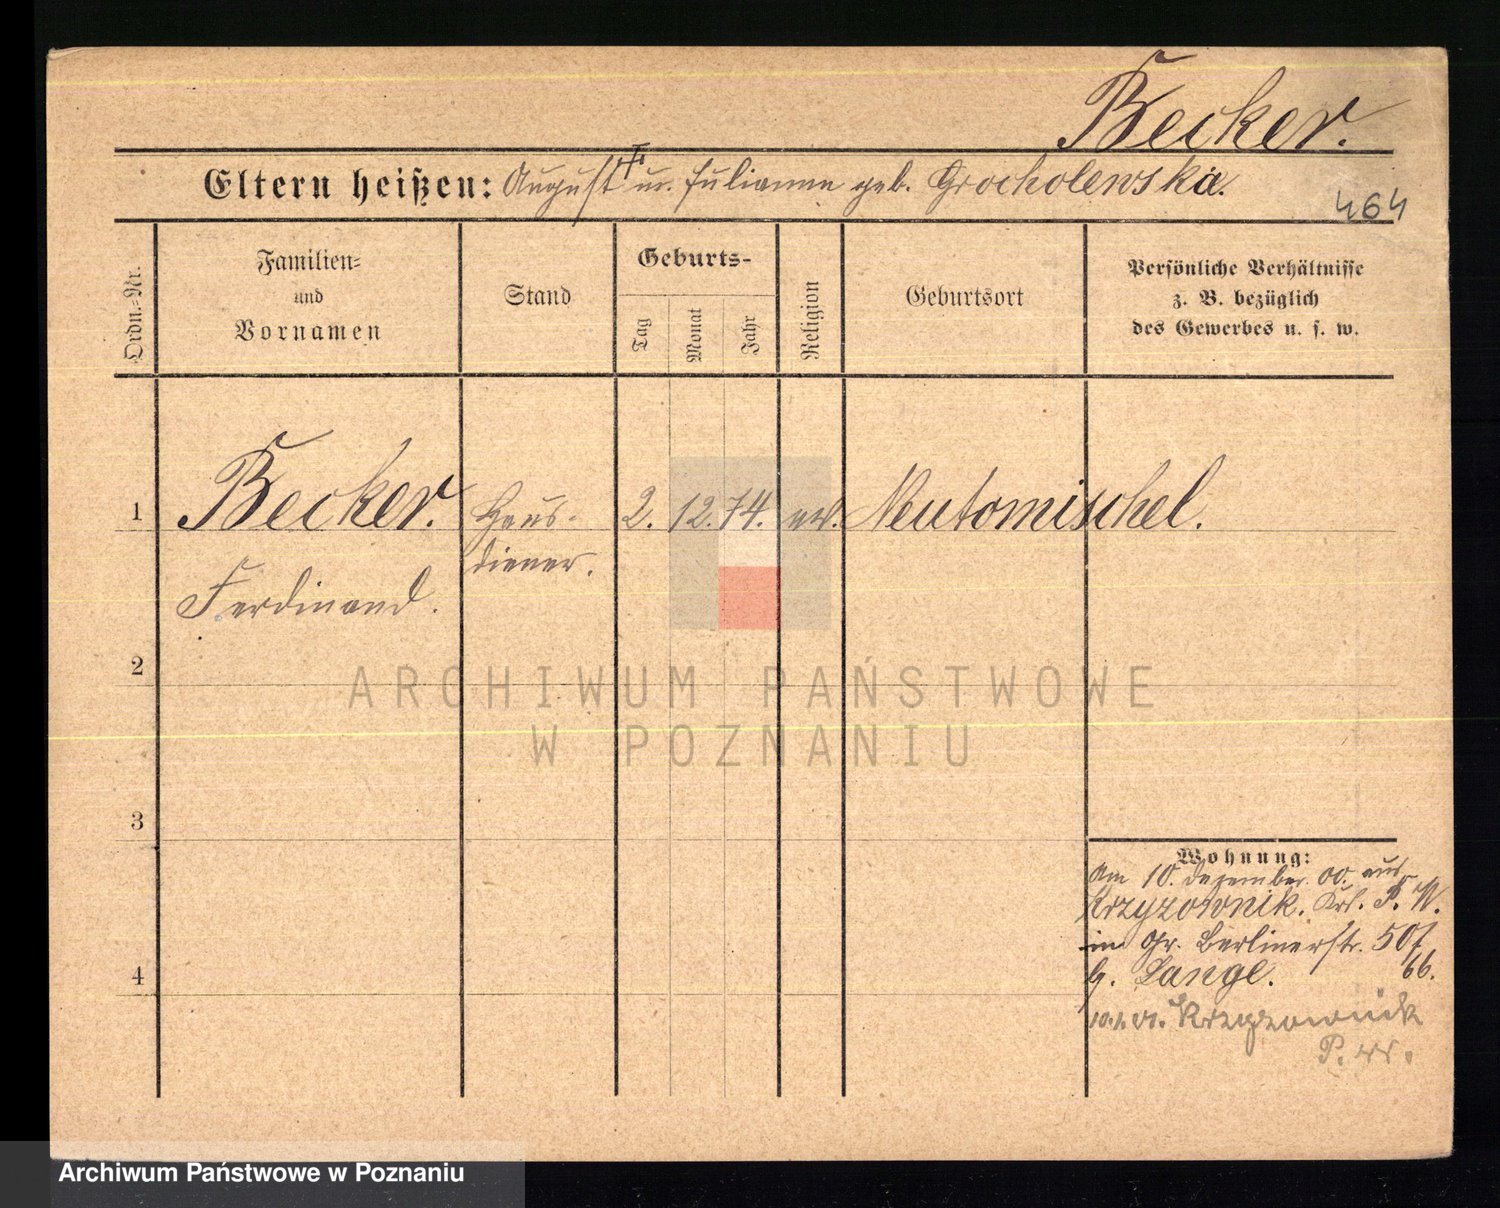 Becker.
Eltern heißen: August † u. Julianna geb. Grocholewska.
464
Ordn.-Nr.
Familien-
und
Vornamen
Stand
Geburts-
Tag
Monat
Jahr
Religion
Geburtsort
Persönliche Verhältnisse
z. B. bezüglich
des Gewerbes u. s. w.
1
Becker. Haus- 2. 12. 74. ev. Neutomischel.
diener.
Ferdinand.
2
ARCHIWUM PAŃSTWOWE
W POZNANIU
3
Wohnung:
Am 10. Dezember 00. aus
Krzyzownik. Krs. P. W.
in Gr. Berlinerstr. 50f
b. Lange. 66.
4
10.1. 01. Krzyzownick
P. W.
Archiwum Państwowe w Poznaniu